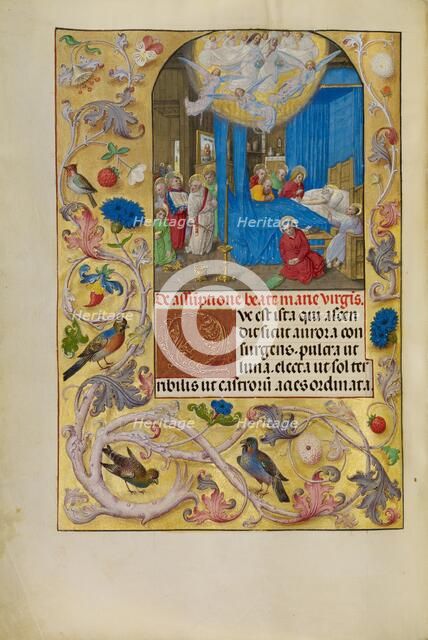 De assūptione beate marie virgīs.
Que est ista qui ascen
dit sicut aurora con
surgens. pulcra ut
luna. electa ut sol ter
ribilis ut castrorū acies ordinata
Heritage
Heritage
Heritage
Heritage
Heritage
Heritage
Heritage
Heritage